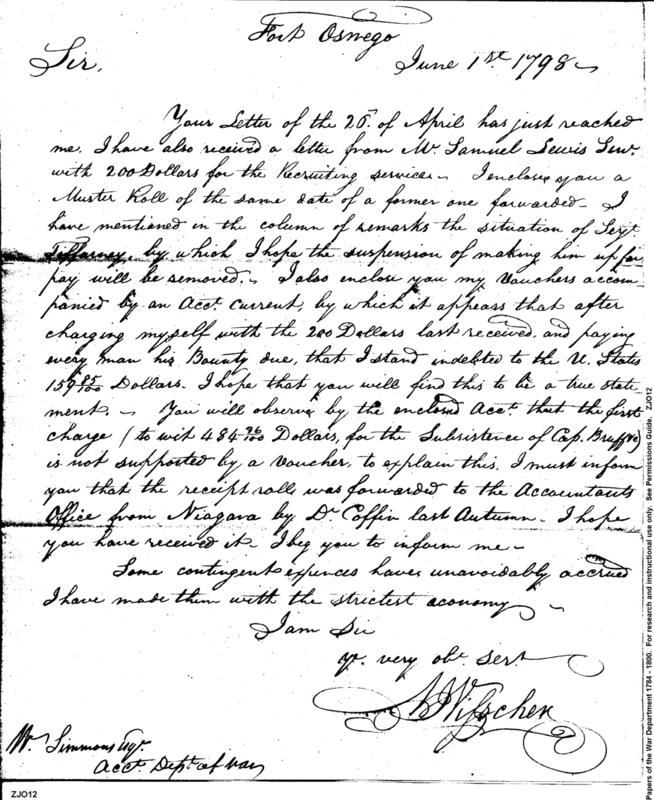 Fort Oswego
June 1st 1798
Sir,
Your Letter of the 26th. of April has just reached
me. I have also received a letter from Mr. Samuel Lewis Senr.
with 200 Dollars for the Recruiting service - I enclose you a
Muster Roll of the same date of a former one forwarded - I
have mentioned in the column of remarks the situation of Serjt.
by which I hope the suspension of making him up for
pay will be removed. - I also enclose you my Vouchers accom
panied by an Acct. current, by which it appears that after
charging myself with the 200 Dollars last received, and paying
every man his Bounty due, that I stand indebted to the U. States
159 85/100 Dollars. I hope that you will find this to be a true state
ment. - You will observe by the enclosed Acct. that the first
charge (to wit 484 76/100 Dollars, for the Subsistence of Cap. Bruff &c)
is not supported by a Voucher, to explain this, I must inform
you that the receipt rolls was forwarded to the Accountants
Office from Niagara by Dr. Coffin last Autumn - I hope
you have received it - I beg you to inform me -
Some contingent expences have unavoidably accrued
I have made them with the strictest economy -
I am Sir
yr. very obt. sert.
Wm. Simmons Esqr.
Acct. Dept. of War
ZJO12
Papers of the War Department 1784 - 1800. For research and instructional use only. See Permissions Guide. ZJO12